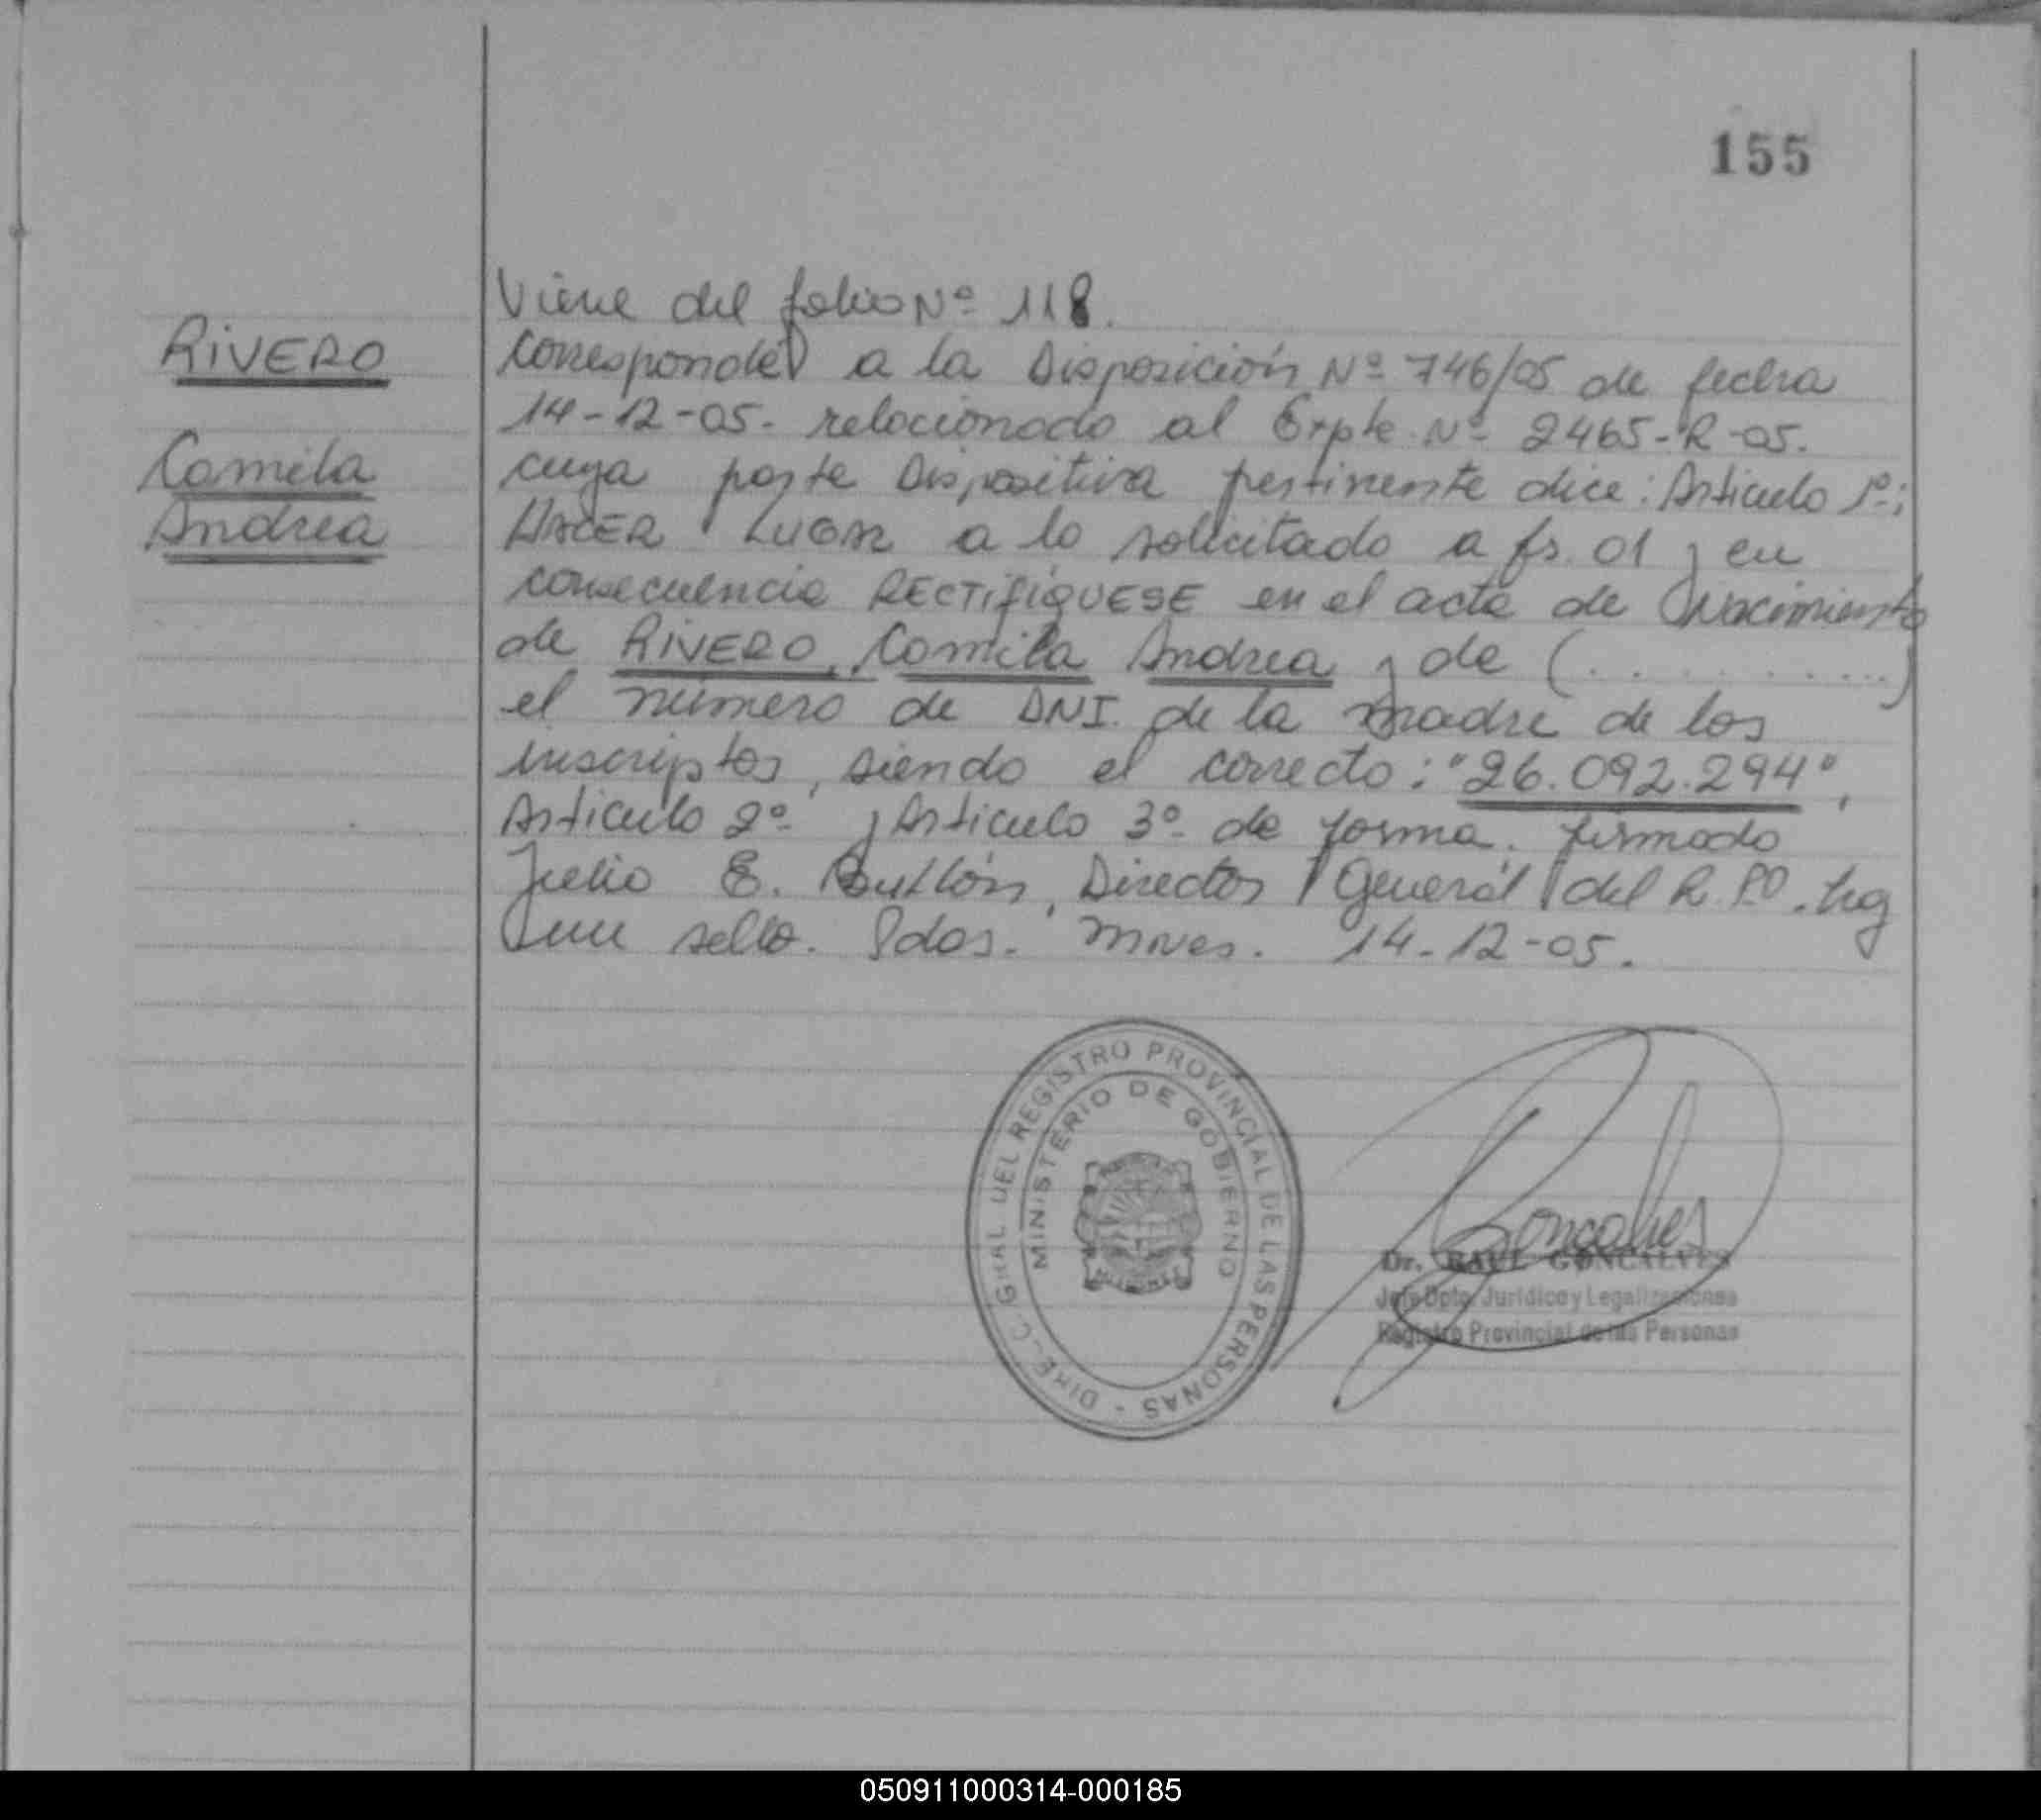 155
RIVERO
Camila
Andrea
Viene del folio Nº 118.
Corresponde a la Disposición Nº 746/05 de fecha
14-12-05. relacionado al Expte Nº 2465-R-05.
cuya parte Dispositiva pertinente dice: Articulo 1º;
HACER LUGAR a lo solicitado a fs. 01 y en
consecuencia RECTIFIQUESE en el acta de Nacimiento
de RIVERO, Camila Andrea y de (..........)
el número de DNI. de la madre de los
inscriptos, siendo el correcto: "26.092.294",
Articulo 2º y Articulo 3º de forma. firmado
Julio E. Bullón, Director General del R.P.P. hay
un sello. Pdas. Mnes. 14-12-05.
DIREC. GRAL DEL REGISTRO PROVINCIAL DE LAS PERSONAS -
MINISTERIO DE GOBIERNO
MISIONES
Goncalves
Dr. RAUL GONCALVES
Jefe Dpto. Jurídico y Legalizaciones
Registro Provincial de las Personas
050911000314-000185